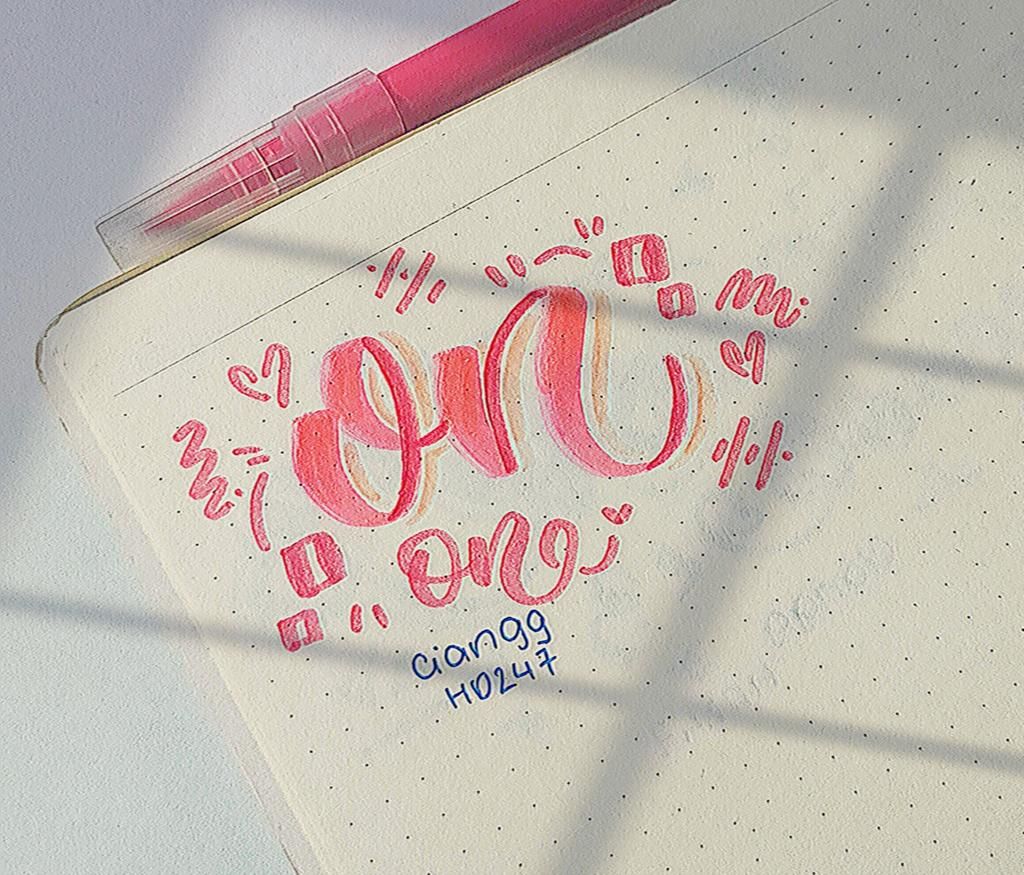 on
on
Giangg
HD247